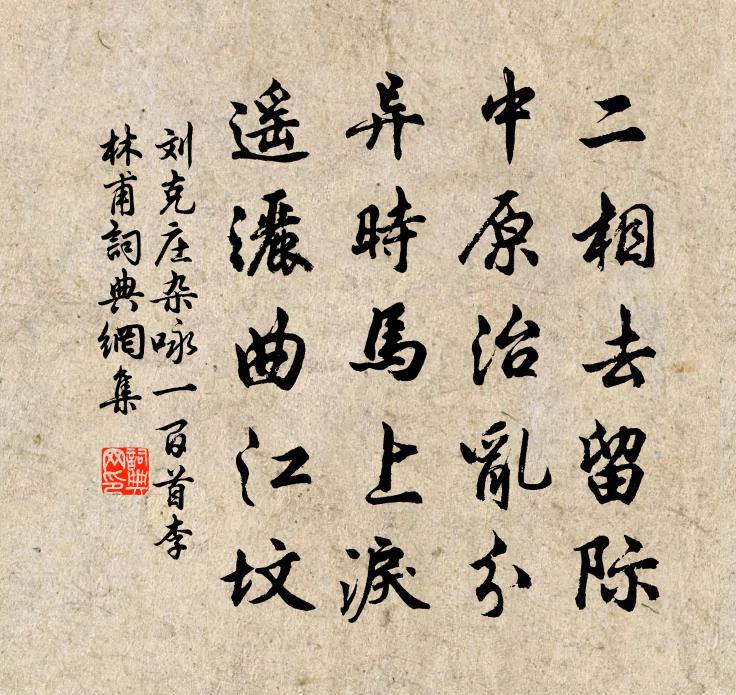 二相去留际
中原治亂分
异時馬上淚
遥灑曲江坟
刘克庄杂咏一百首李
林甫詞典網集
詞典网印